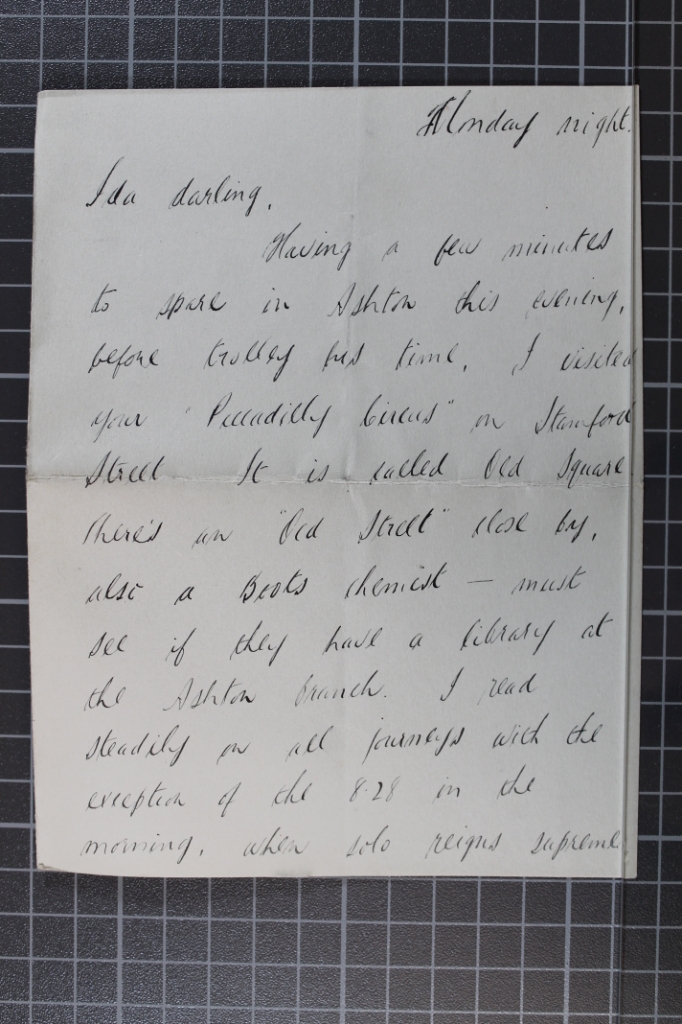 Monday night.
Ida darling,
Having a few minutes
to spare in Ashton this evening,
before trolley bus time, I visited
your "Piccadilly Circus" on Stamford
Street. It is called Old Square
there's an "Old Street" close by,
also a Boots chemist — must
see if they have a library at
the Ashton branch. I read
steadily on all journeys with the
exception of the 8.28 in the
morning, when solo reigns supreme